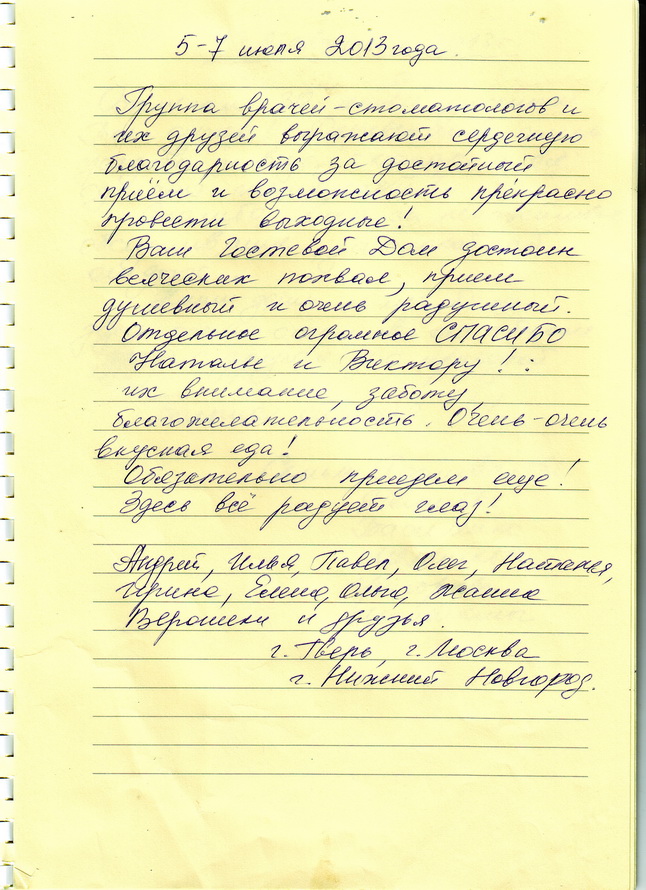 5-7 июля 2013 года.
Группа врачей-стоматологов и
их друзей выражают сердечную
благодарность за достойный
приём и возможность прекрасно
провести выходные!
Ваш Гостевой Дом достоин
всяческих похвал, прием
душевный и очень радушный.
Отдельное огромное СПАСИБО
Наталье и Виктору! :
их внимание, заботу,
благожелательность. Очень-очень
вкусная еда!
Обязательно приедем еще!
Здесь всё радует глаз!
Андрей, Илья, Павел, Олег, Наталья,
Ирина, Елена, Ольга, Жанна
и друзья.
г. Тверь, г. Москва
г. Нижний Новгород.